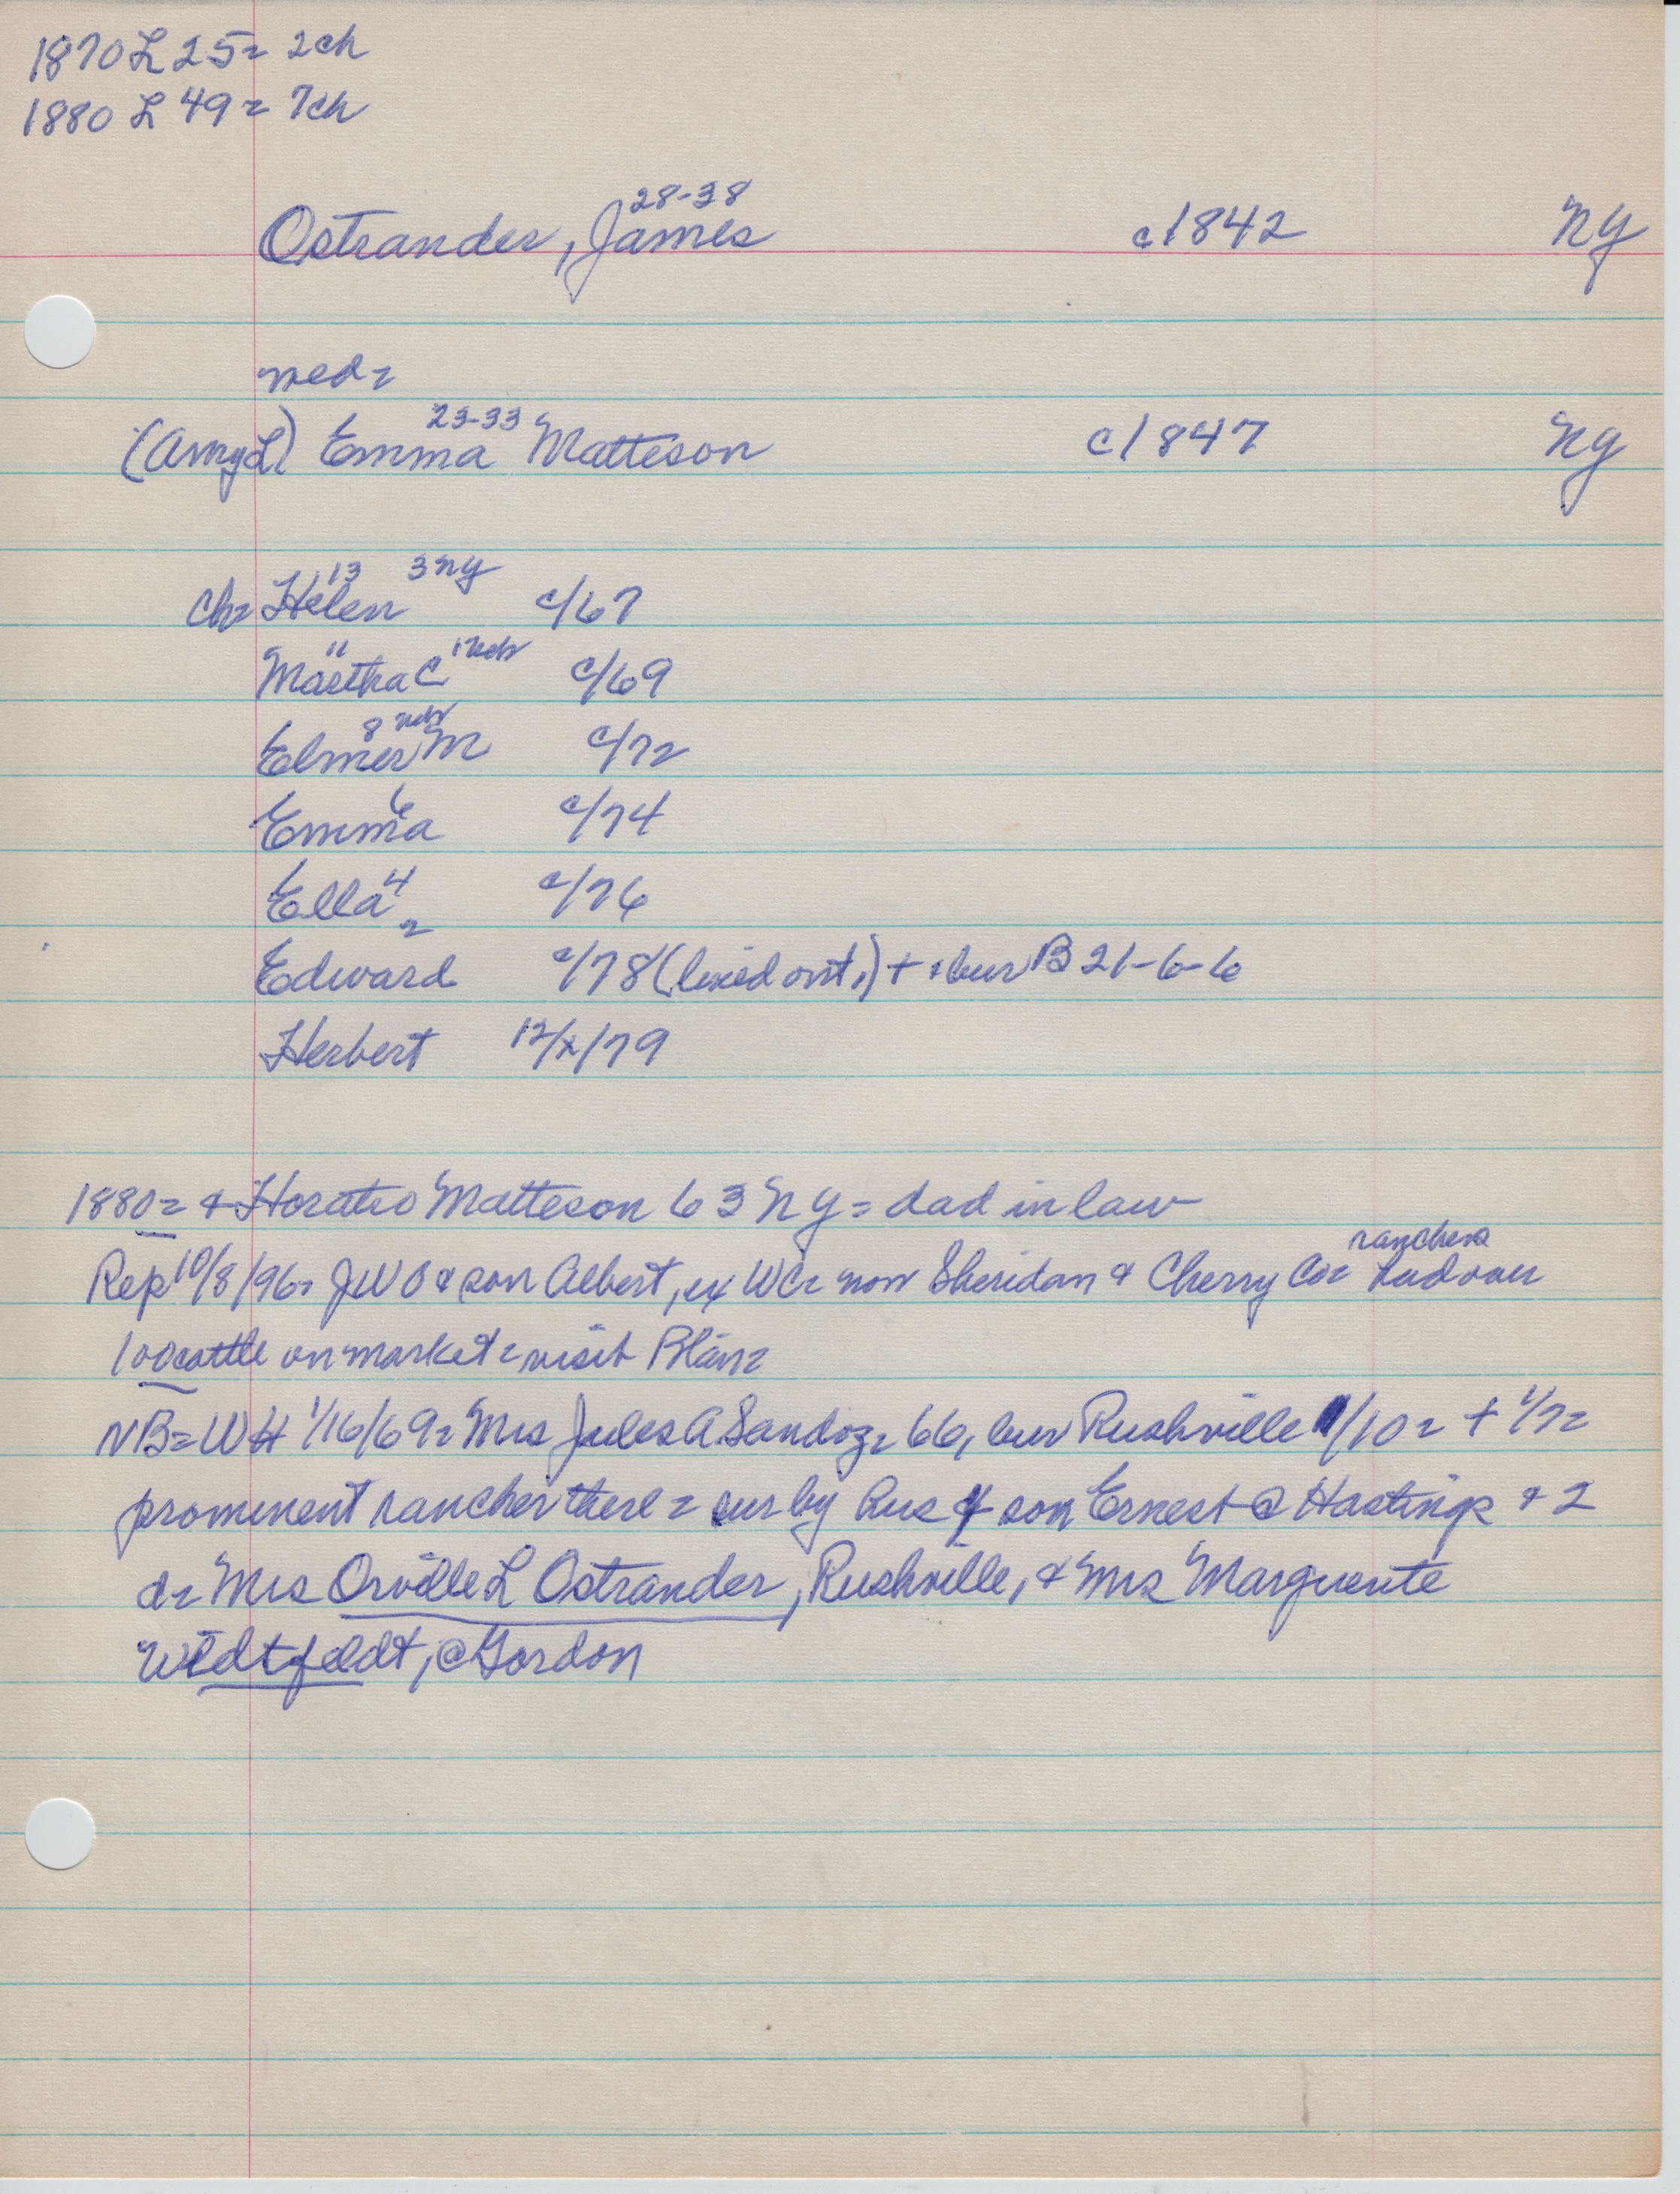 1870 L 25= 2ch
1880 L 49= 7ch
28-38
Ostrander, James c1842 NY
med=
23-33
(Amy L) Emma Matteson c1847 NY
13 3 NY
ch= Helen c/67
11 1 Neb
Martha C c/69
8 Neb
Elmer M c/72
6
Emma c/74
4
Ella c/76
2
Edward c/78 (lived ont.) + bur B 21-6-6
Herbert 12/x/79
1880= & Horatio Matteson 63 NY= dad in law
ranchers
Rep 10/8/96= JWO & son Albert, ex WC= now Sheridan & Cherry Co= had over
100 cattle on market= visit Blair=
NB= WH 1/16/69= Mrs Jules A Sandoz= 66, bur Rushville 1/10= + 1/7=
prominent rancher there= sur by hus & son Ernest @ Hastings & 2
d= Mrs Orville L Ostrander, Rushville, & Mrs Marguerite
Widtfeldt, @ Gordon